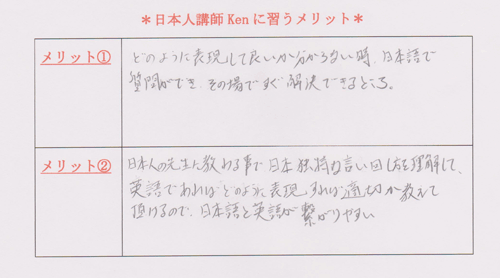 ＊日本人講師 Ken に習うメリット＊
メリット①
どのように表現して良いか分からない時、日本語で
質問ができ、その場ですぐ解決できるところ。
メリット②
日本人の先生に教わる事で日本独特な言い回し方を理解して、
英語であればどのように表現すれば適切か教えて
頂けるので、日本語と英語が繋がりやすい